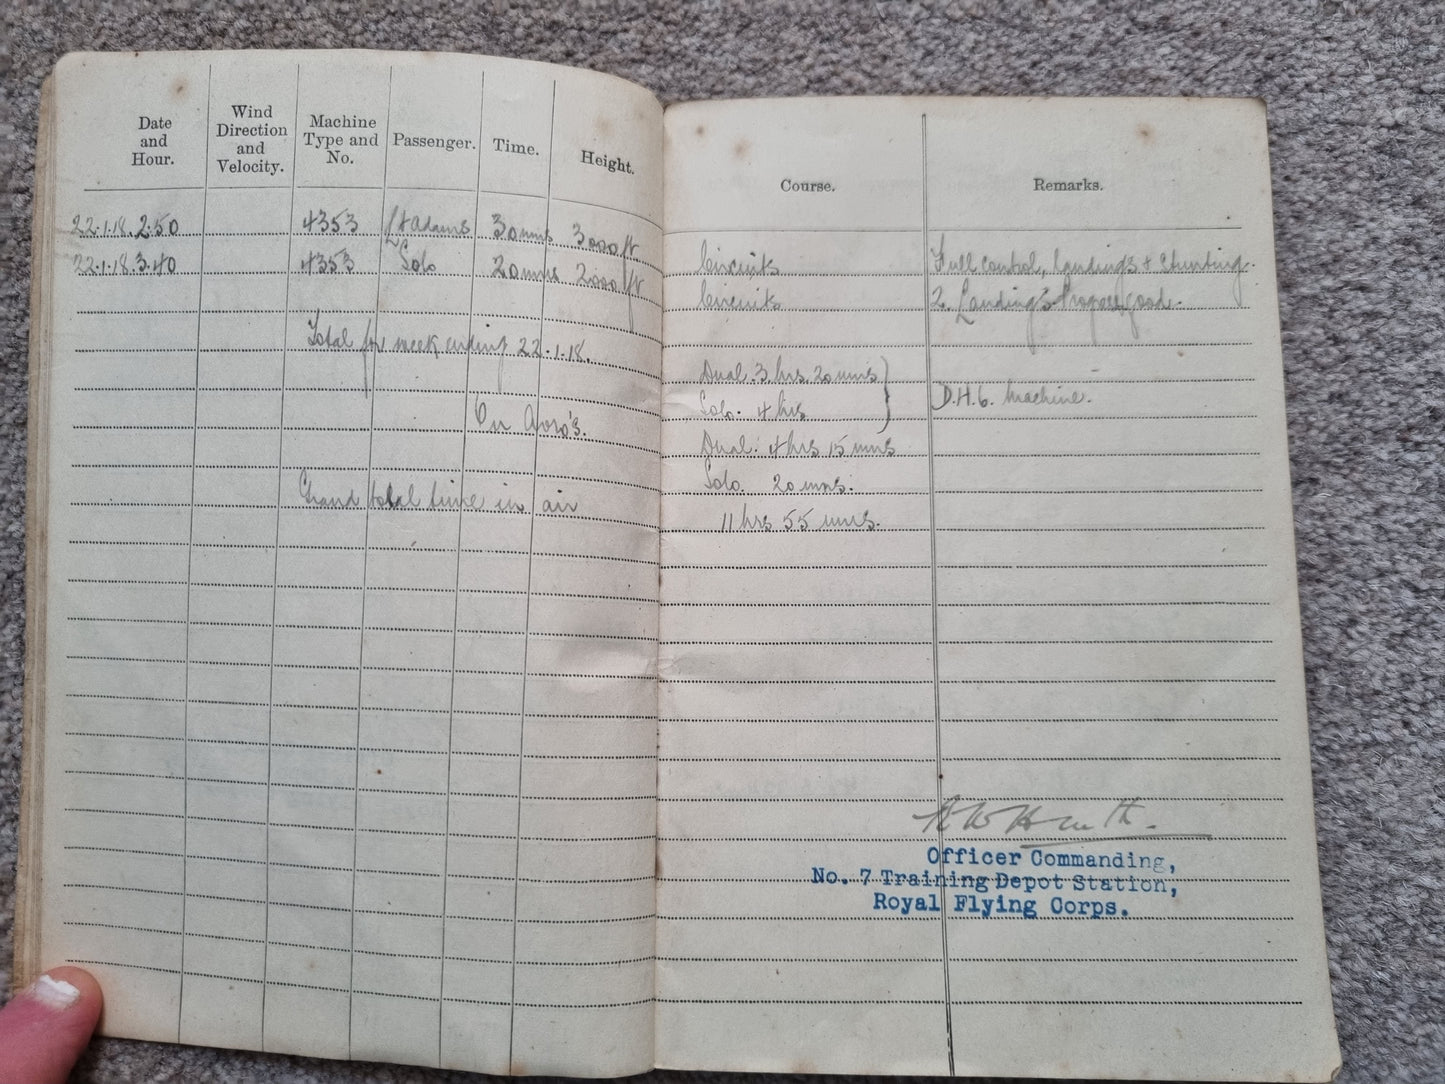 Date and Hour. Wind Direction and Velocity. Machine Type and No. Passenger. Time. Height. Course. Remarks.
22.1.18. 2.50 4353 Lt Adams 30 mins 3000 ft Circuits Full control, landings + Stunting.
22.1.18. 3.40 4353 Solo 20 mins 2000 ft Circuits 2. Landings good.
Total for week ending 22.1.18. Dual. 3 hrs. 20 mins
Solo. 4 hrs D.H.6. Machine.
On Avro's. Dual: 4 hrs 15 mins
Solo. 20 mins.
Grand total time in air 11 hrs 55 mins.
Officer Commanding,
No. 7 Training Depot Station,
Royal Flying Corps.